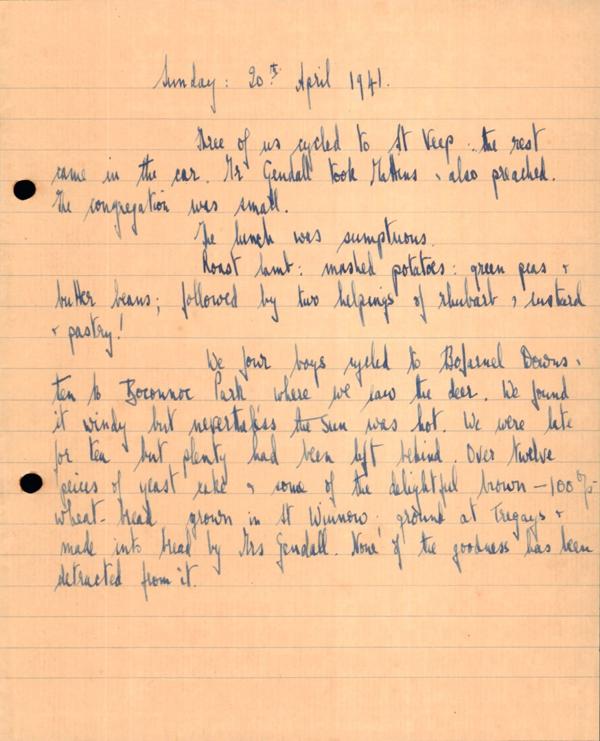 Sunday: 20th April 1941.
Three of us cycled to St Veep: the rest
came in the car. Mr Gendall took Mattins & also preached.
The congregation was small.
The lunch was sumptuous.
Roast lamb: mashed potatoes: green peas &
butter beans; followed by two helpings of rhubarb & custard
& pastry!
We four boys cycled to Downs,
to Boconnoc Park where we saw the deer. We found
it windy but nevertheless the sun was hot. We were late
for tea but plenty had been left behind. Over twelve
peices of yeast cake & some of the delightful brown – 100%
wheat-bread grown in St Winnow; ground at Tregays &
made into bread by Mrs Gendall. None of the goodness has been
detracted from it.